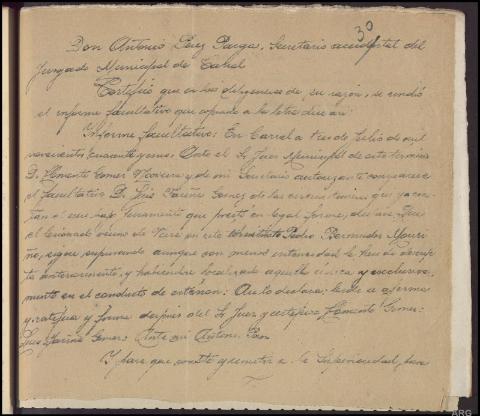 30
Don Antonio Pérez Parga, Secretario accidental del
Juzgado Municipal de Carral
Certifico que en las diligencias de su razón, se rindió
el informe facultativo que copiado a la letra dice así:
Informe facultativo: En Carral a tres de Julio de mil
novecientos cuarenta y uno. Ante el Sr Juez Municipal de este termino
D. Clemente Gomez y de mi Secretario autorizante comparece
el facultativo D. Luis Fariña Gomez de las circunstancias que ya cons-
tan el cual bajo juramento que prestó en legal forma, declara: Que
el lesionado vecino de en este Pedro Bermudez Mouri-
ño, sigue supurando aunque con menos intensidad la herida descri-
ta anteriormente, y habiendose localizado aquella única y exclusiva-
mente en el conducto de
y ratifica y firma después del Sr Juez y certifico Clemente Gomez:
Luis Fariña Gomez Ante mi Antonio
Y para que conste y remitir a la Superioridad, para
ARG